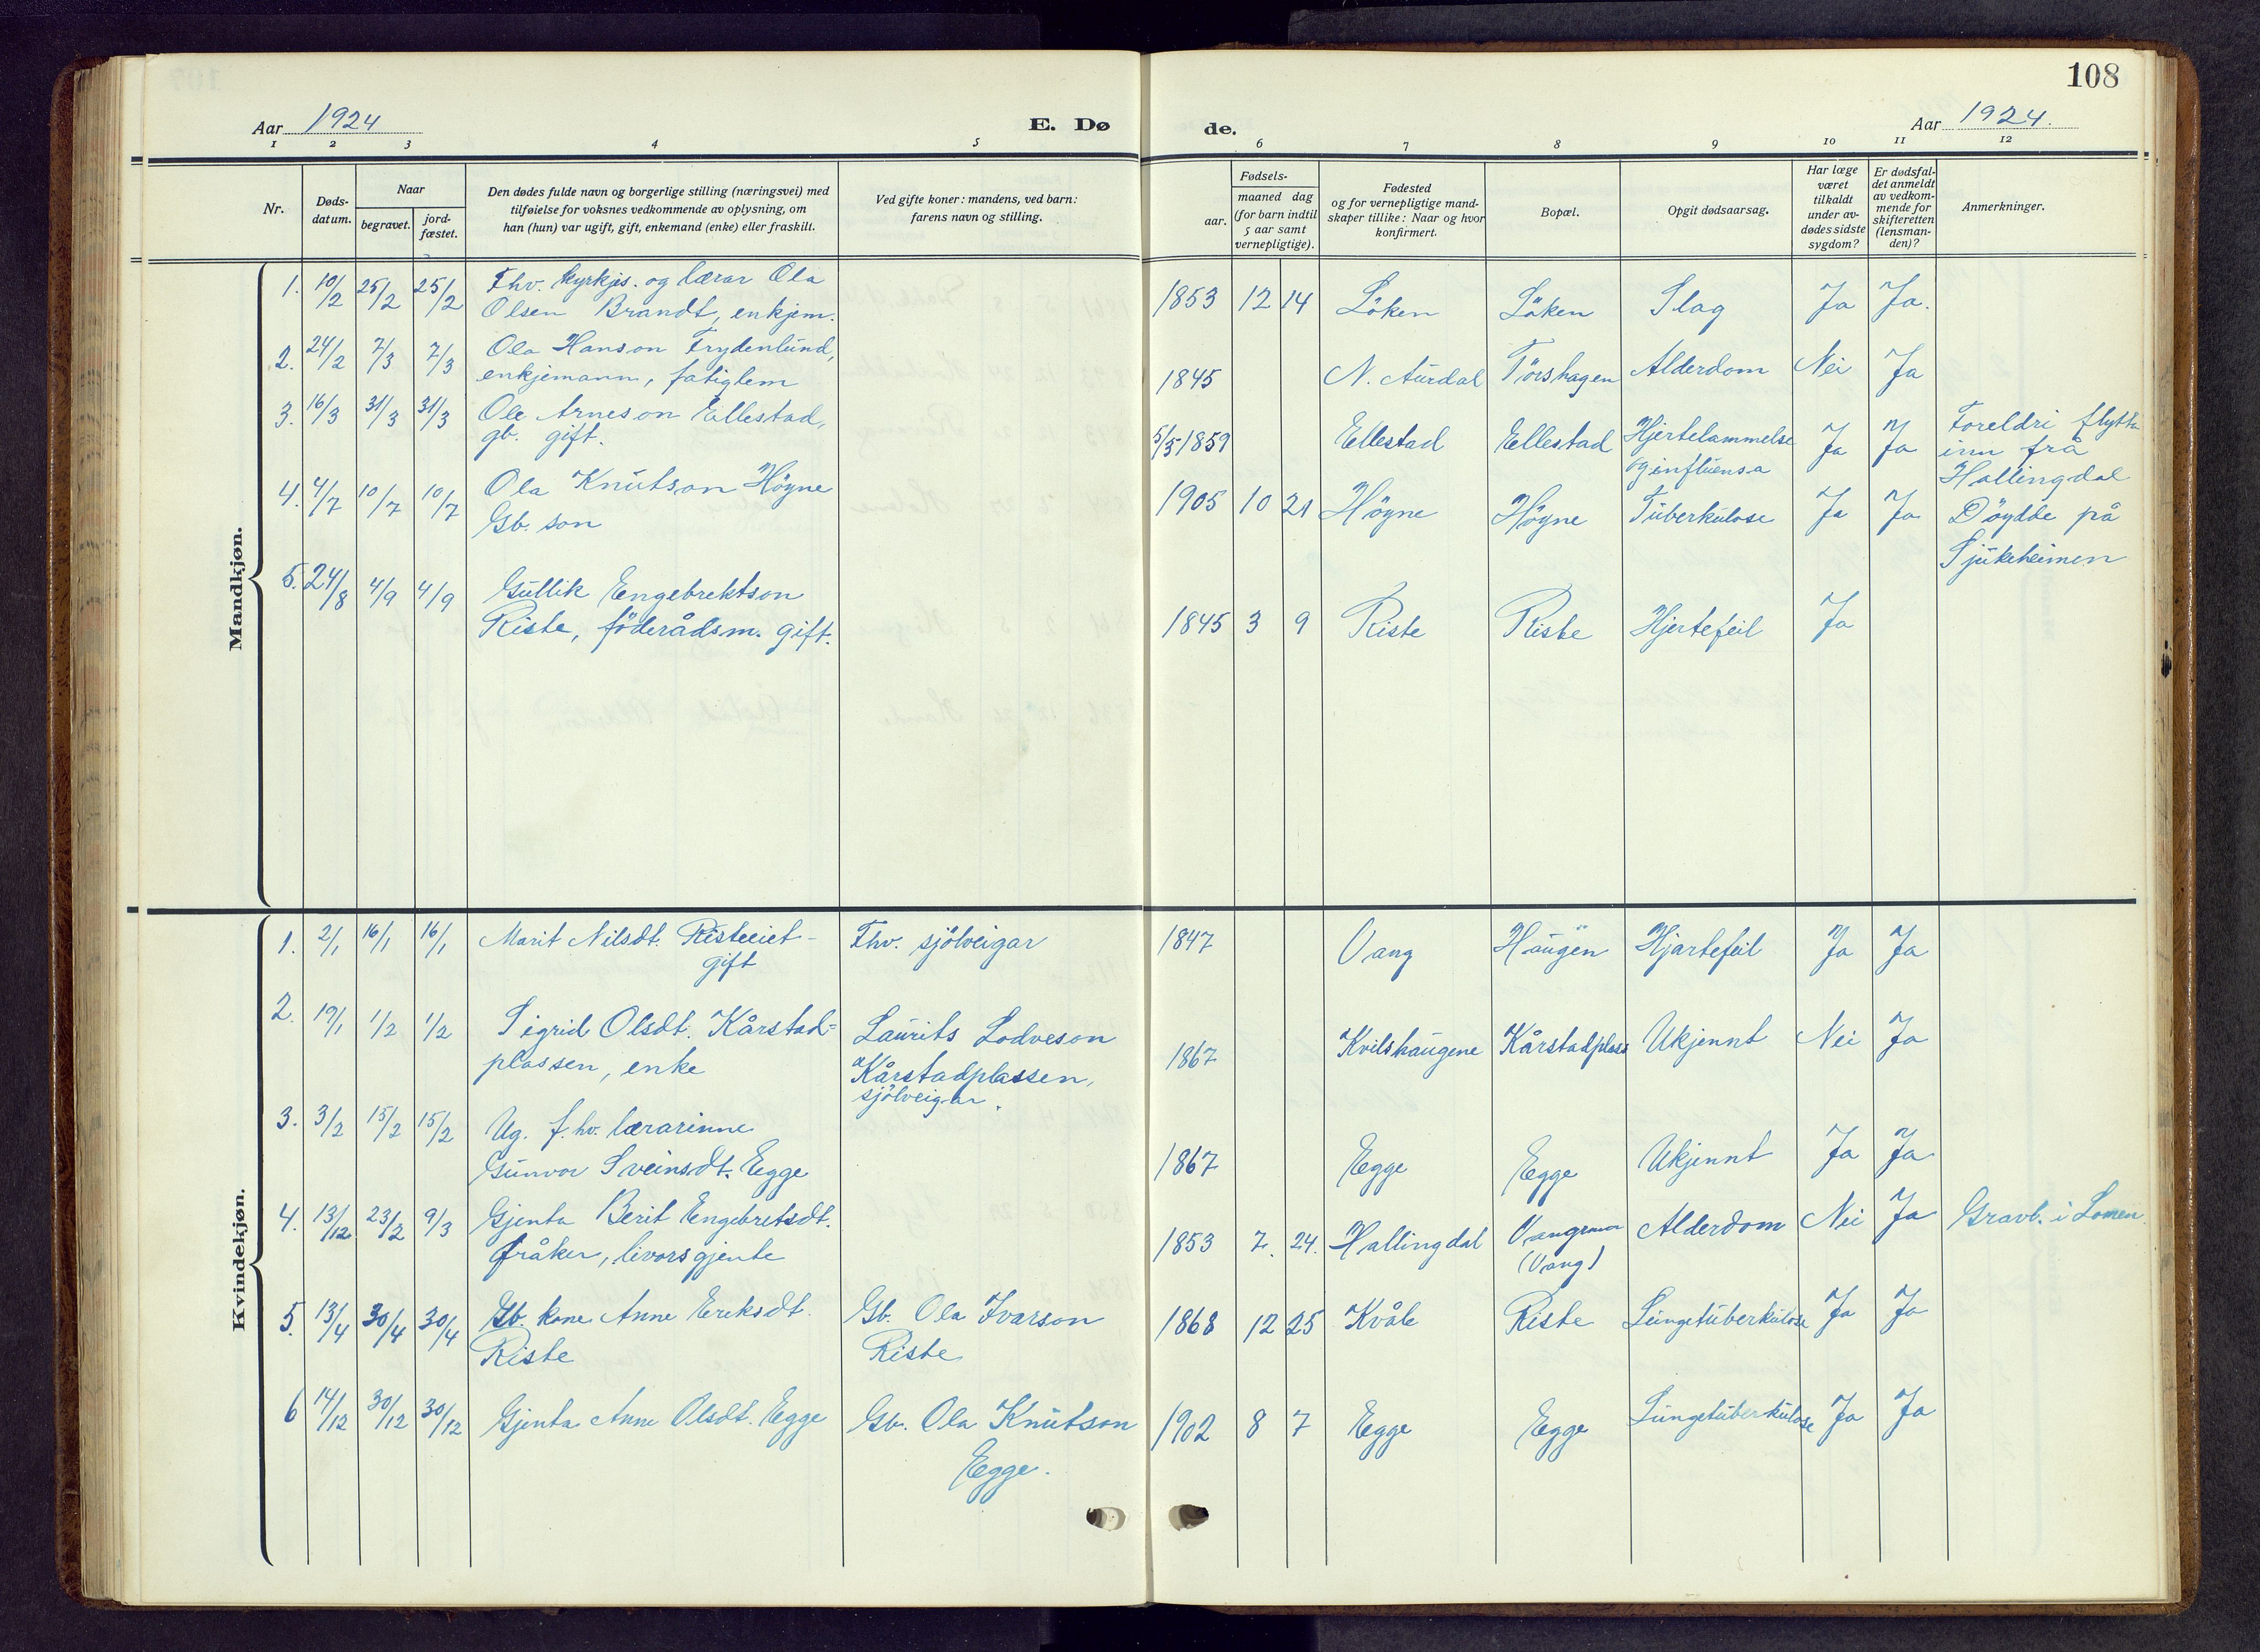 108
Aar 1924 E. Dø de. Aar 1924.
1 2 3 4 5 6 7 8 9 10 11 12
Nr.
Døds-
datum.
Naar
begravet.
jord-
fæstet.
Den dødes fulde navn og borgerlige stilling (næringsvei) med
tilføielse for voksnes vedkommende av oplysning, om
han (hun) var ugift, gift, enkemand (enke) eller fraskilt.
Ved gifte koner: mandens, ved barn:
farens navn og stilling.
Fødsels-
aar.
maaned dag
(for barn indtil
5 aar samt
vernepligtige).
Fødested
og for vernepligtige mand-
skaper tillike: Naar og hvor
konfirmert.
Bopæl.
Opgit dødsaarsag.
Har læge
været
tilkaldt
under av-
dødes sidste
sygdom?
Er dødsfal-
det anmeldt
av vedkom-
mende for
skifteretten
(lensman-
den)?
Anmerkninger.
Mandkjøn.
1. 10/2 25/2 25/2 Fhv. kyrkjes. og lærar Ola
Olsen Brandt, enkjem. 1853 12 14 Löken Löken Slag Ja Ja.
2. 24/2 7/3 7/3 Ola Hanson Frydenlund,
enkjemann, fatiglem 1845 N. Aurdal Törshagen Alderdom Nei Ja
3. 16/3 31/3 31/3 Ole Arneson Ellestad,
gb. gift. 5/5 1859 Ellestad Ellestad Hjertelammelse
og influensa Ja Ja Foreldri flytte
inn frå
Hallingdal
4. 4/7 10/7 10/7 Ola Knutson Högne
Gb. son 1905 10 21 Högne Högne Tuberkulose Ja Ja Döydde på
Sjukeheimen
5. 24/8 4/9 4/9 Gullik Engebrektson
Riste, föderådsm. gift. 1845 3 9 Riste Riste Hjertefeil Ja
Kvindekjøn.
1. 2/1 16/1 16/1 Marit Nilsdt. Risteeiet-
gift Fhv. sjölveigar 1847 Vang Haugen Hjartefeil Ja Ja
2. 19/1 1/2 1/2 Sigrid Olsdt. Kårstad=
plassen, enke Laurits Lodveson
Kårstadplassen,
sjölveigar. 1867 Kvilshaugene Kårstadplass Ukjennt Nei Ja
3. 3/2 15/2 15/2 Ug. f.hv. lærarinne
Gunvor Sveinsdt. Egge 1867 Egge Egge Ukjennt Ja Ja
4. 13/12 23/2 9/3 Gjenta Berit Engebretsdt.
Fråker, livorsgjente 1853 7. 24. Hallingdal
(Vang) Alderdom Nei Ja Gravl. i Lomen
5. 13/4 30/4 30/4 Gb. kone Anne Eriksdt.
Riste Gb. Ola Ivarson
Riste 1868 12 25 Kvåle Riste Lungetuberkulose Ja Ja
6 14/12 30/12 30/12 Gjenta Anne Olsdt. Egge Gb. Ola Knutson
Egge. 1902 8 7 Egge Egge Lungetuberkulose Ja Ja